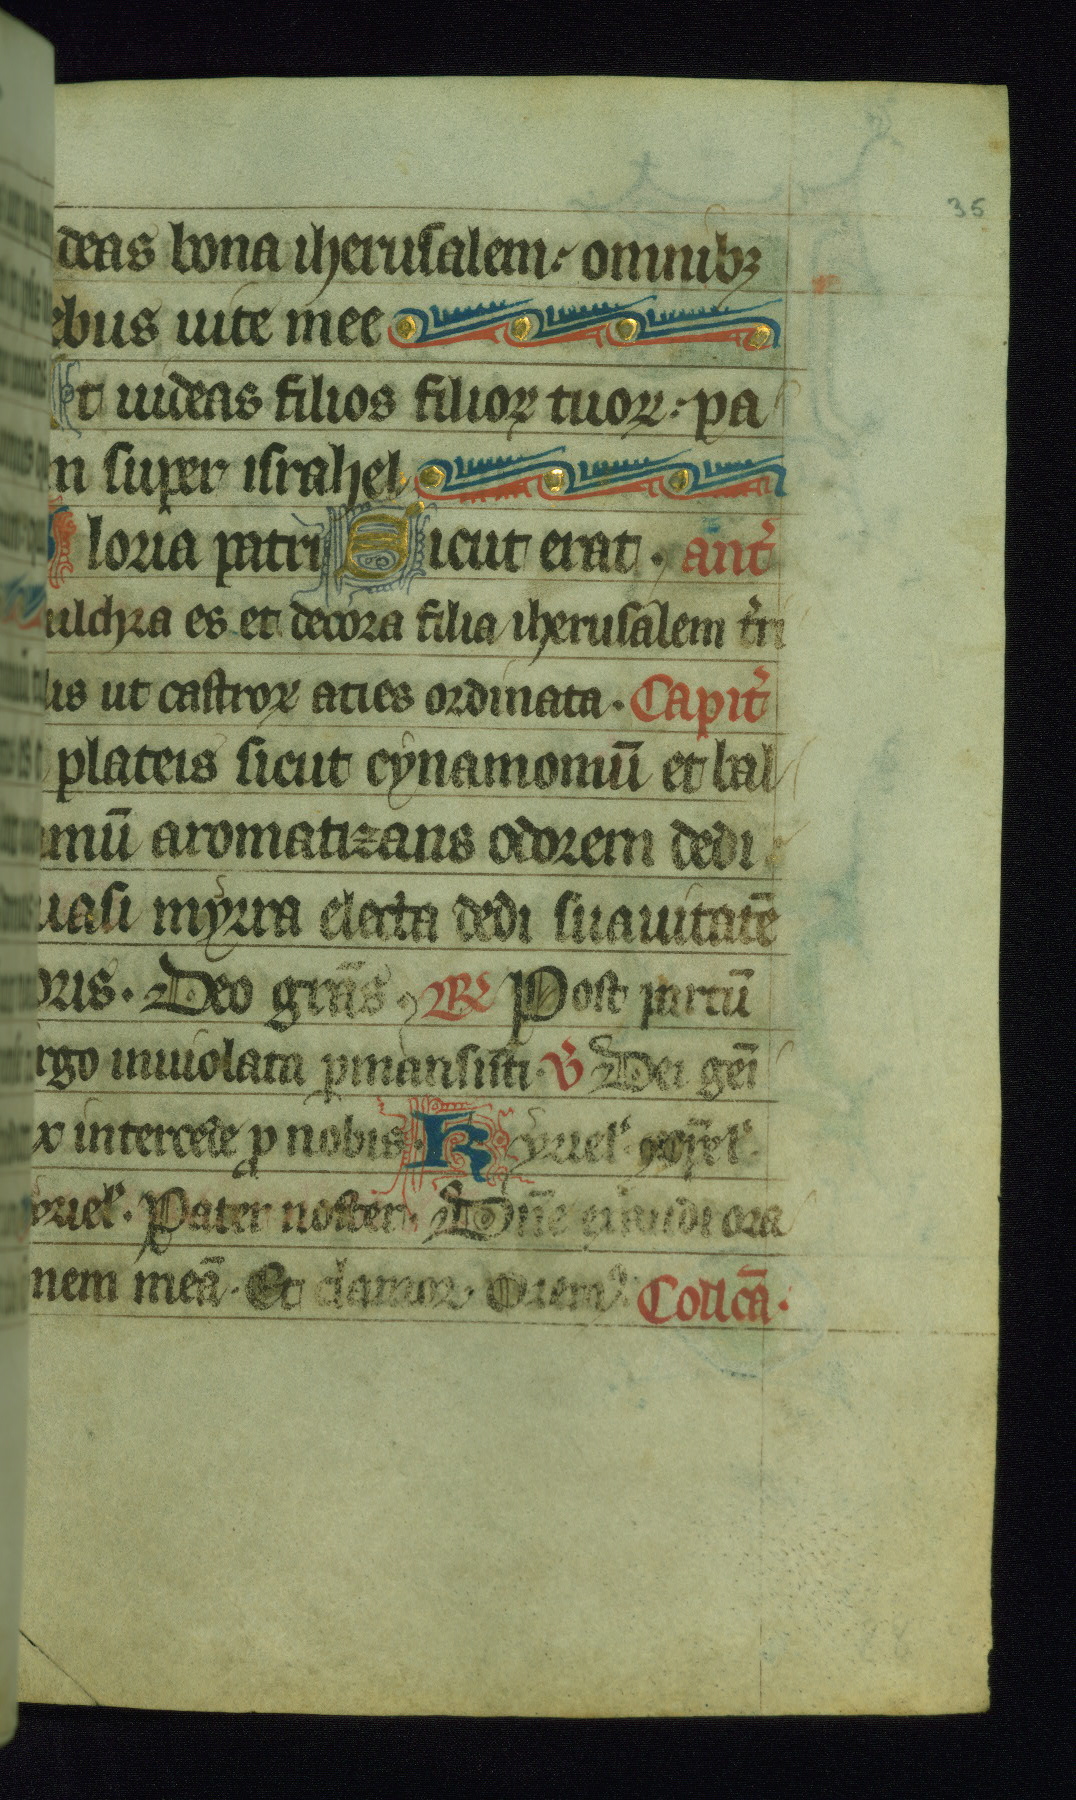 35
deas bona iherusalem: omnibꝫ
ebus uite mee
Et uideas filios filioꝝ tuoꝝ: pa
n super israhel.
loria patri Sicut erat. ant̄
ulchra es et decora filia iherusalem t̄ri
lis ut castroꝝ acies ordinata. Capit̄
plateis sicut cynamomū et bal
amū aromatizans odorem dedi
uasi myrra electa dedi suauitatē
oris. Deo grās. R̄ Post partū
irgo inuiolata ꝑmansisti. V̄ Dei geī
x intercede ꝓ nobis. Kyriel̛.
yriel̛. Pater noster. Dn̄e exaudi ora
nem meā. Et clamor. Oremꝰ. Collcā.